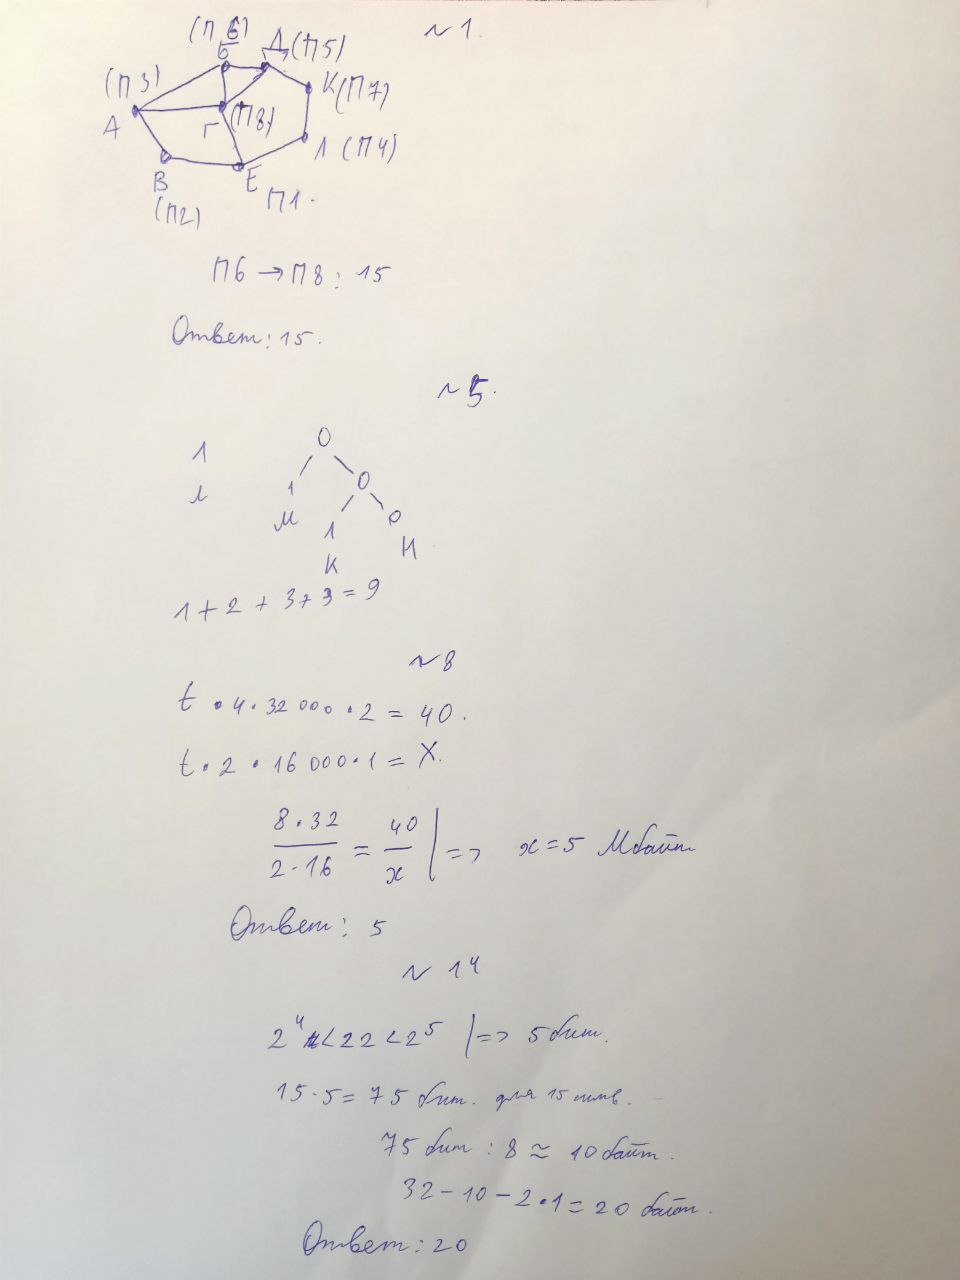 ~ 1.
(П 6)
Б
Д (П5)
(П 3)
К(П7)
А
Г (П8)
Л (П4)
В
Е
(П2)
П1.
П6 → П8 : 15
Ответ: 15.
~ 5.
1 0
л 1 0
М 1 0
К Н
1 + 2 + 3 + 3 = 9
~ 8
t • 4 • 32 000 • 2 = 40.
t • 2 • 16 000 • 1 = X.
8 • 32 / 2 • 16 = 40 / x | => x = 5 Мбайт
Ответ: 5
~ 14
2⁴ < 22 < 2⁵ | => 5 бит.
15 • 5 = 75 бит. для 15 симв.
75 бит : 8 ≈ 10 байт.
32 – 10 – 2 • 1 = 20 байт.
Ответ: 20